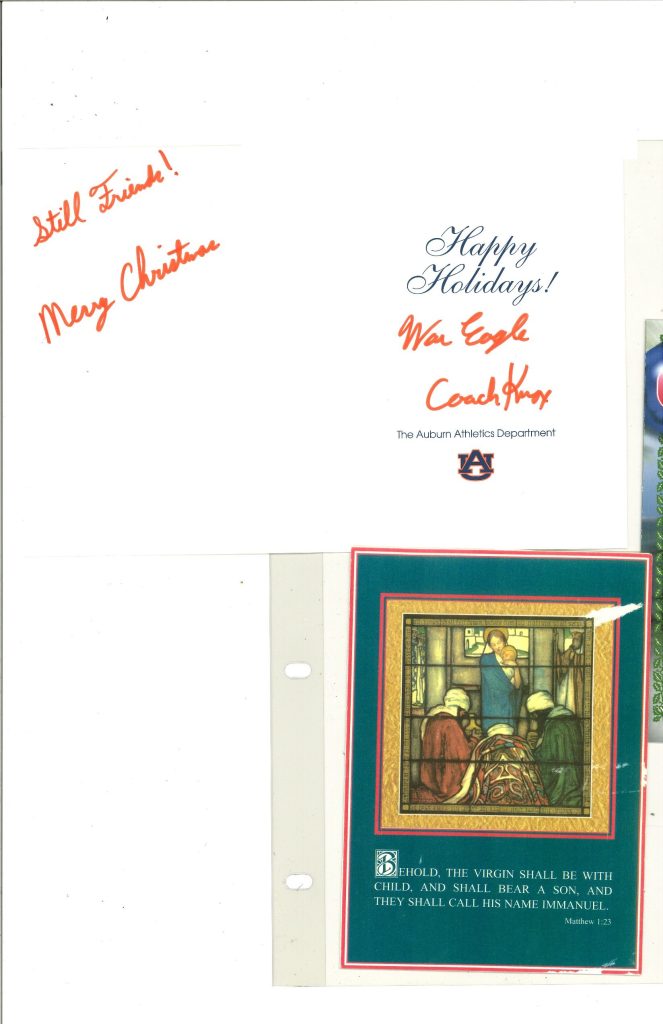 Still Friends!
Merry Christmas
Happy
Holidays!
War Eagle
Coach Knox
The Auburn Athletics Department
AU
BEHOLD, THE VIRGIN SHALL BE WITH
CHILD, AND SHALL BEAR A SON, AND
THEY SHALL CALL HIS NAME IMMANUEL.
Matthew 1:23